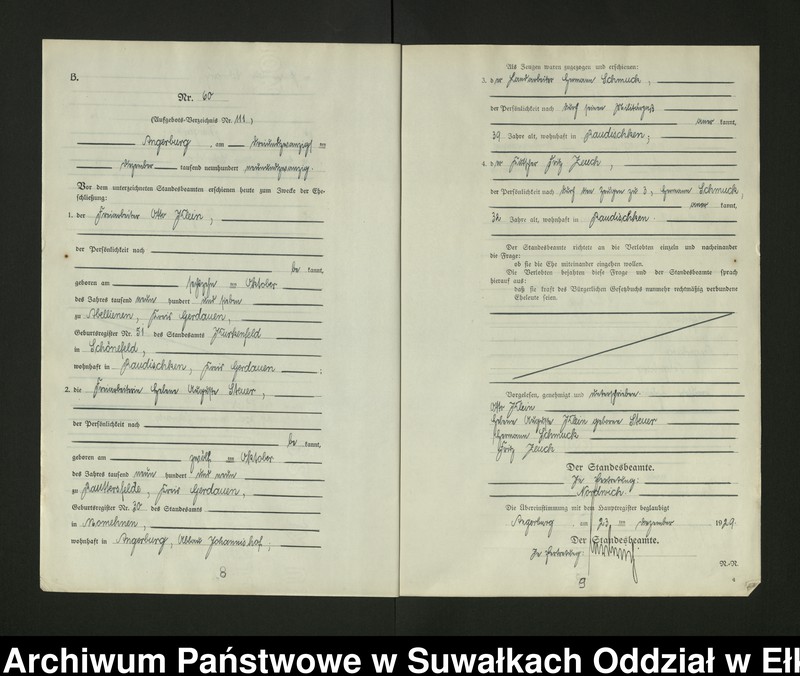 B.
Nr. 60
(Aufgebots-Verzeichnis Nr. 111.)
Angerburg, am dreiundzwanzigsten
Dezember tausend neunhundert neunundzwanzig.
Vor dem unterzeichneten Standesbeamten erschienen heute zum Zwecke der Ehe-
schließung:
1. der Otto Klein,
der Persönlichkeit nach
be kannt,
geboren am sechzehnten Oktober
des Jahres tausend neun hundert und sieben
zu Kreis Gerdauen,
Geburtsregister Nr. 51 des Standesamts Kurkenfeld
in Schönefeld,
wohnhaft in Raudischken, Kreis Gerdauen;
2. die Helene Auguste Steuer,
der Persönlichkeit nach
be kannt,
geboren am zwölften Oktober
des Jahres tausend neun hundert und neun
zu Kreis Gerdauen,
Geburtsregister Nr. 30 des Standesamts
in Momehnen,
wohnhaft in Angerburg, Abbau Johannishof;
8
Als Zeugen waren zugezogen und erschienen:
3. der Landarbeiter Hermann Schmuck,
der Persönlichkeit nach durch seinen Militärpaß
aner kannt,
39 Jahre alt, wohnhaft in Raudischken;
4. der Fritz Zeuch,
der Persönlichkeit nach durch den Zeugen zu 3, Hermann Schmuck,
aner kannt,
32 Jahre alt, wohnhaft in Raudischken.
Der Standesbeamte richtete an die Verlobten einzeln und nacheinander
die Frage:
ob sie die Ehe miteinander eingehen wollen.
Die Verlobten bejahten diese Frage und der Standesbeamte sprach
hierauf aus:
daß sie kraft des Bürgerlichen Gesetzbuchs nunmehr rechtmäßig verbundene
Eheleute seien.
Vorgelesen, genehmigt und unterschrieben
Otto Klein
Helene Auguste Klein geborene Steuer
Hermann Schmuck
Fritz Zeuch
Der Standesbeamte.
In Vertretung:
Nordwich.
Die Übereinstimmung mit dem Hauptregister beglaubigt
Angerburg, am 23. ten Dezember 1929.
Der Standesbeamte.
In Vertretung:
N-N
9
Archiwum Państwowe w Suwałkach Oddział w Ełk